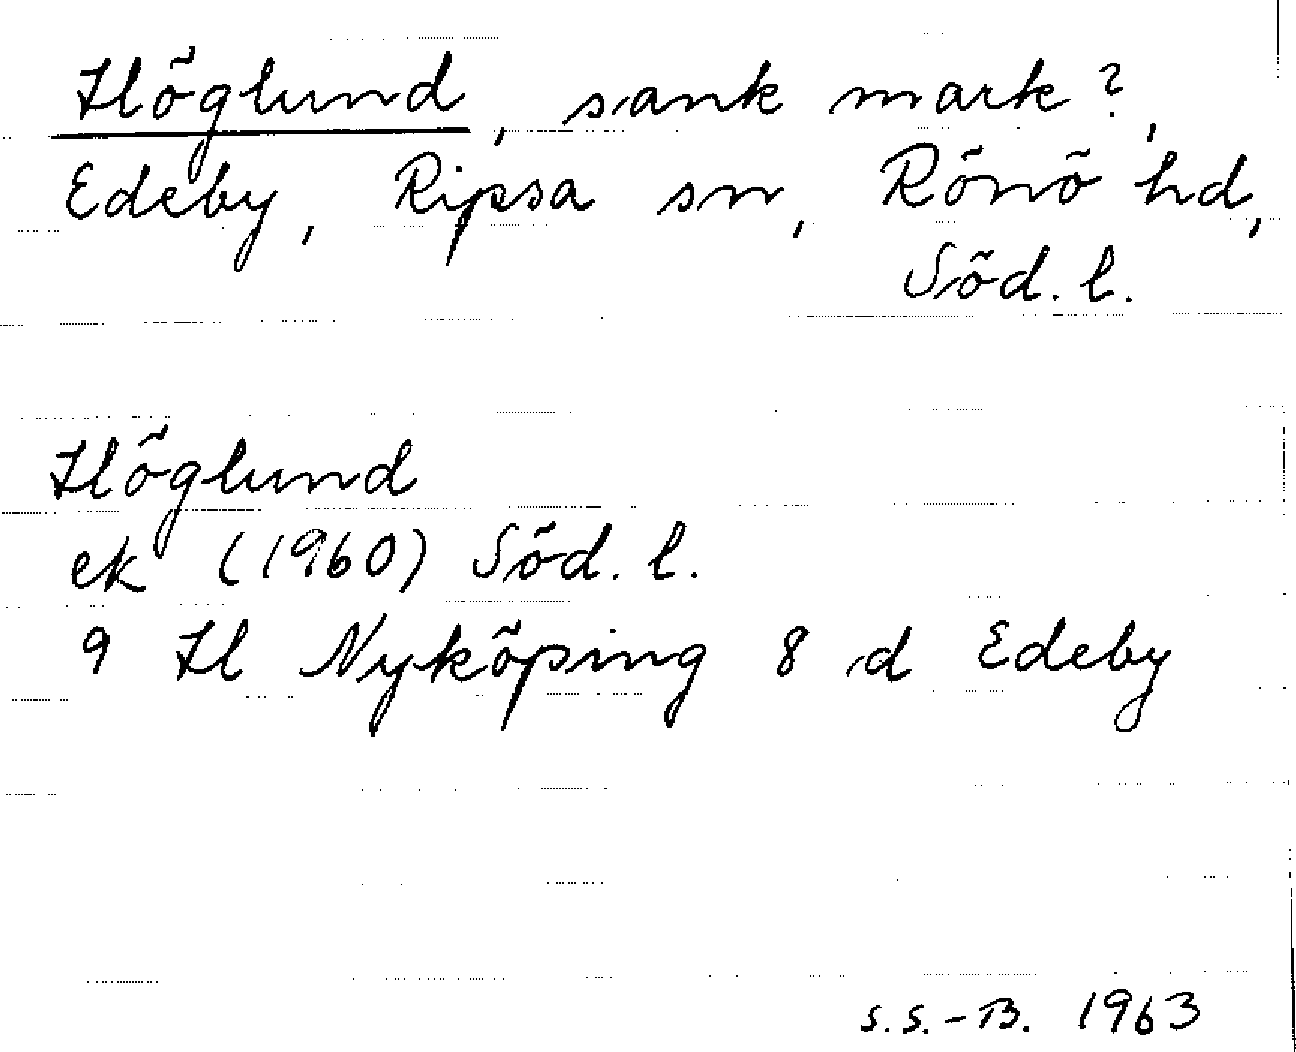 Höglund, sank mark?,
Edeby, Ripsa sn, Rönö hd,
Söd. l.
Höglund
ek (1960) Söd. l.
9 H Nyköping 8 d Edeby
S.S.-B. 1963